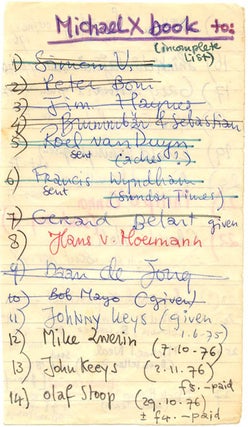 Michael X book to:
(incomplete list)
1) Simon V.
2) Peter Bom
3) Jim Haynes
4) & Sebastian
5) Roel van Duyn
sent
6) Francis Wyndham
sent (Sunday Times)
7) Gerard Belart given
8) Hans v.
9) Daan de Jong
10) Bob Mayo (given)
11) Johnny Keys (given
1.6.75)
12) Mike Zwerin
(7.10.76)
13) John Keys (2.11.76)
f8.-paid
14) Olaf Stoop (29.10.76)
± f4.-paid